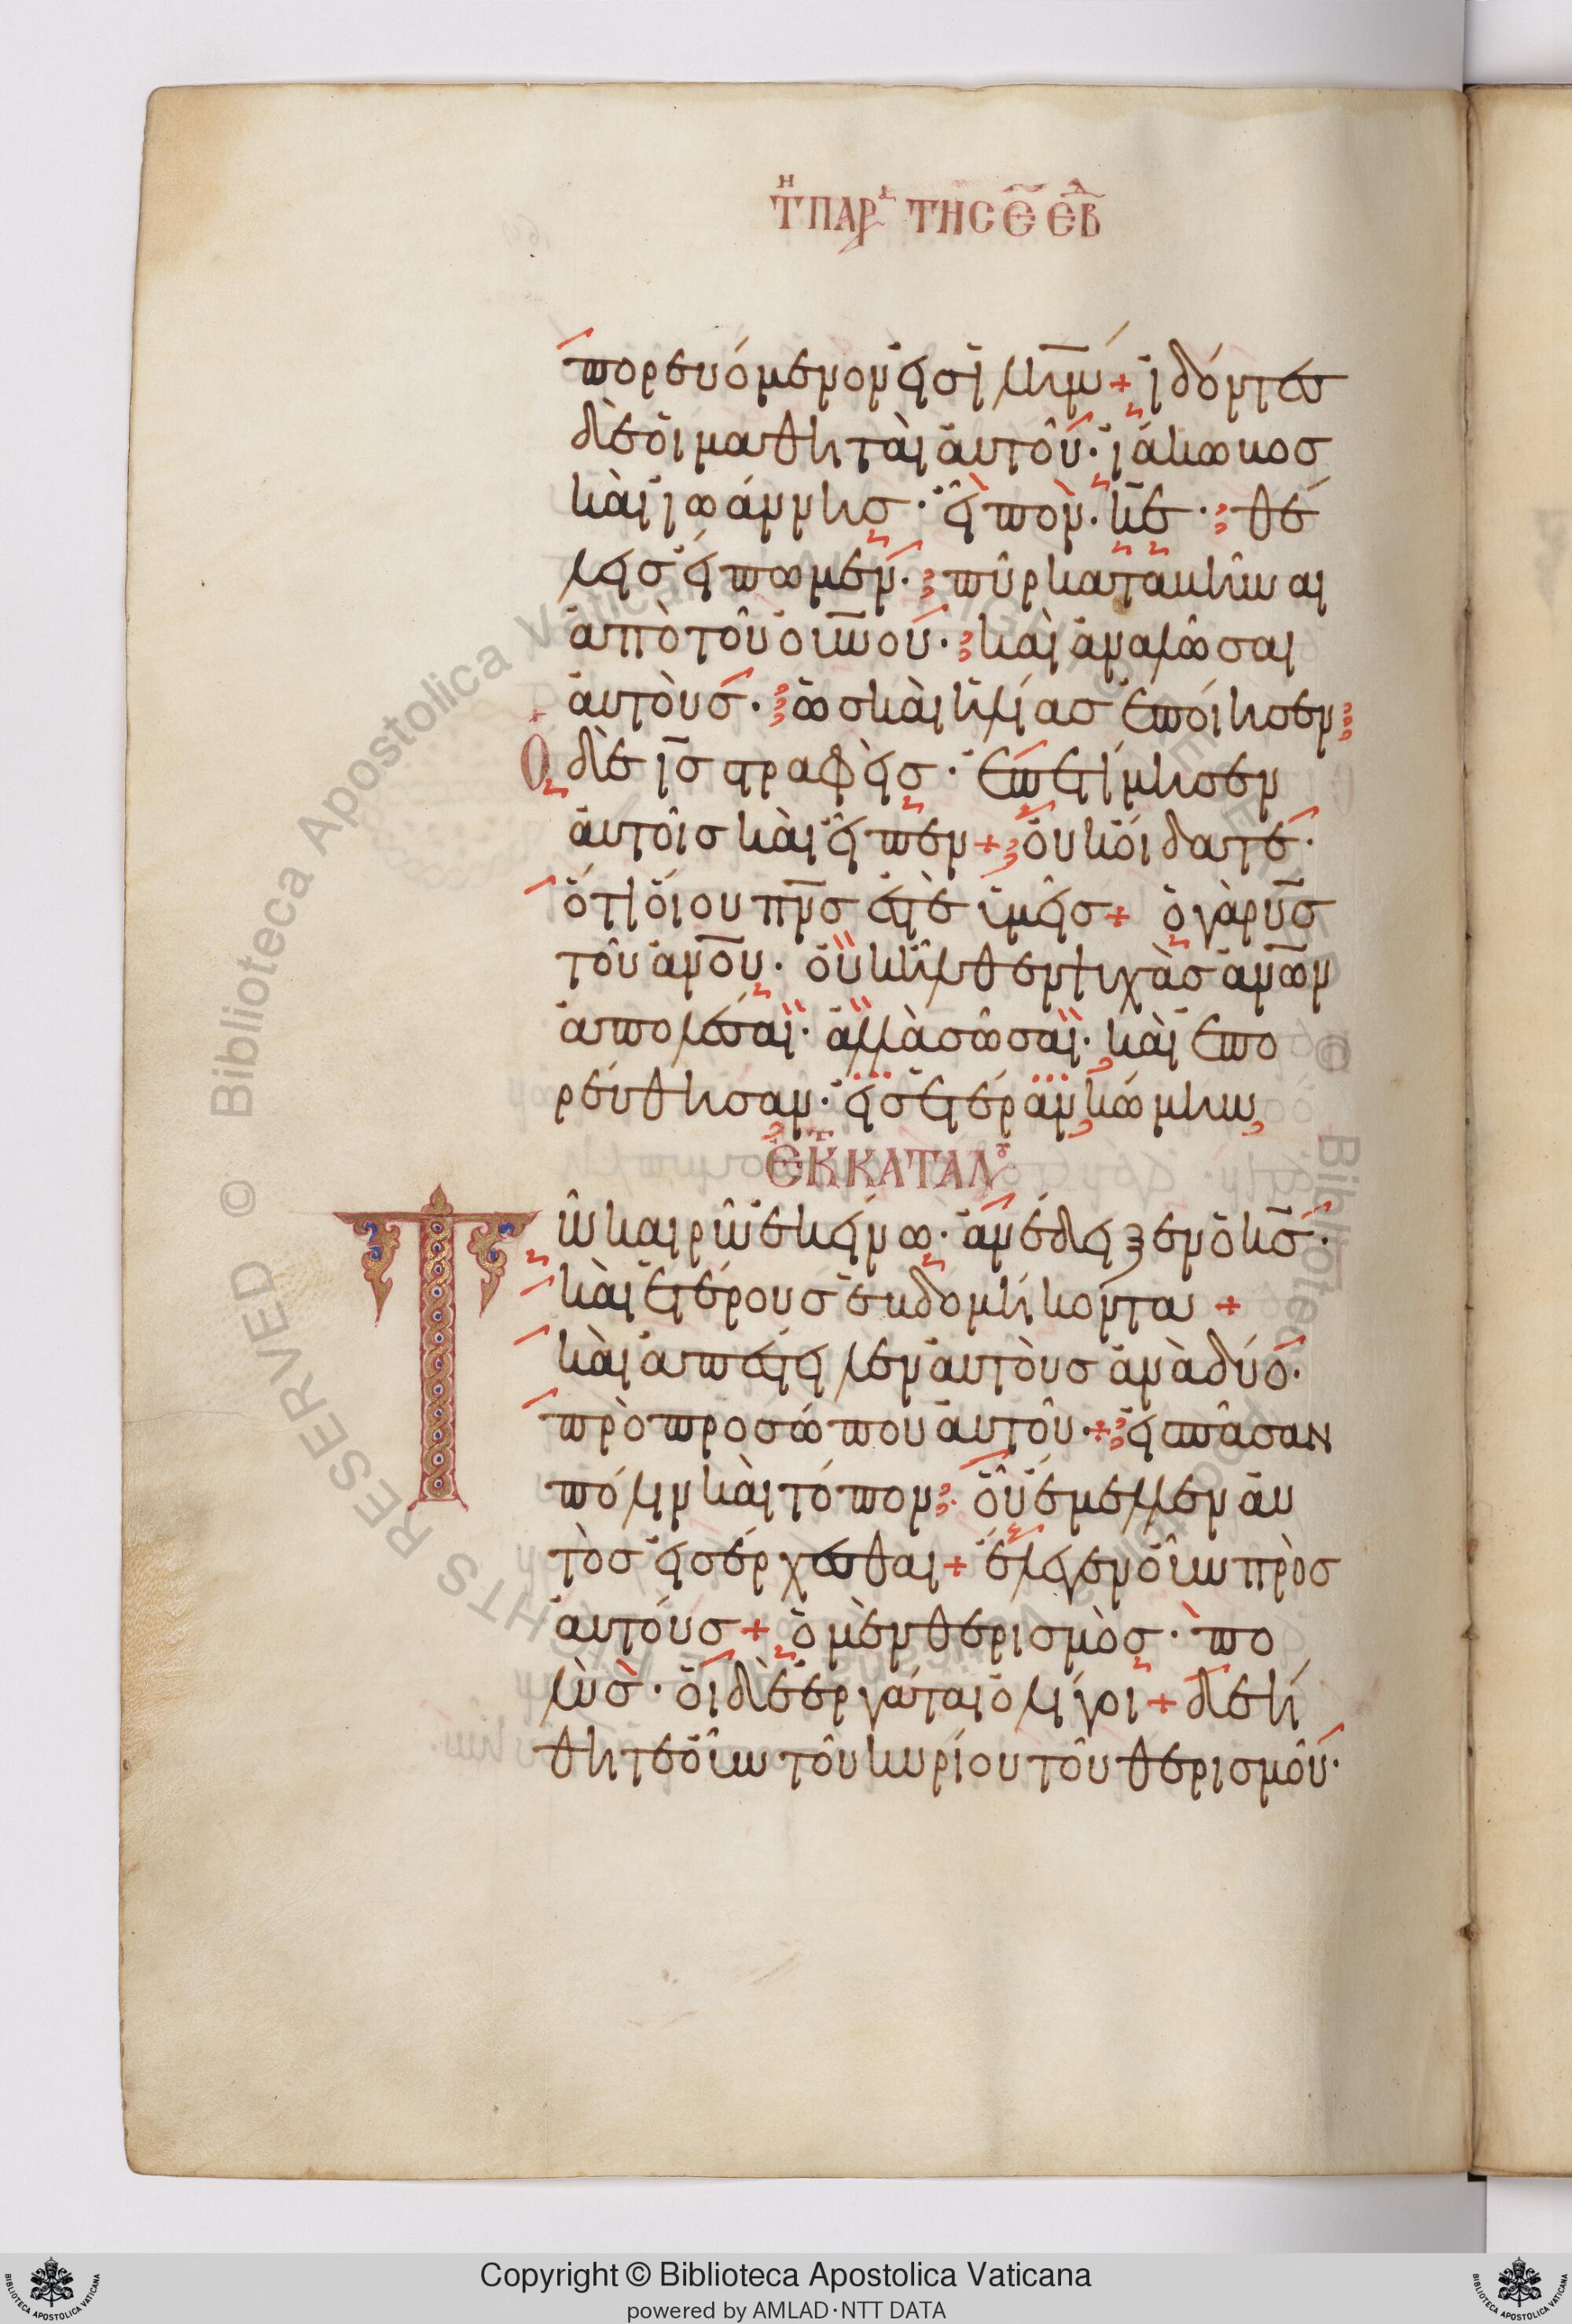 τῇ παρ τῆς ε ἑβδ
πορευόμενον εἰς ἰλημ + ἰδόντες
δὲ οἱ μαθηταὶ αὐτοῦ· ἰάκωβος
καὶ ἰωάννης· εἶπον· κε· θέ
λεις εἴπωμεν· πῦρ καταβῆναι
ἀπὸ τοῦ οὐνου· καὶ ἀναλῶσαι
αὐτοὺς· ὡς καὶ ἠλίας ἐποίησεν
Ο δὲ ις στραφεὶς· ἐπετίμησεν
αὐτοῖς καὶ εἶπεν + οὐκ οἴδατε·
ὅτι οἵου πνς ἐστὲ ὑμεῖς + ὁ γὰρ υς
τοῦ ἀνου· οὐκ ἦλθεν ψυχὰς ἀνων
ἀπολέσαι· ἀλλὰ σῶσαι· καὶ ἐπο
ρεύθησαν· εἰς ἑτέραν κώμην
ἐκ τ κατὰ λου
Τῶ καιρῶ ἐκείνω· ἀνέδειξεν ὁ κς·
καὶ ἑτέρους ἑβδομήκοντα +
καὶ ἀπέστειλεν αὐτοὺς ἀνὰ δύο·
πρὸ προσώπου αὐτοῦ· + εἰς πᾶσαν
πόλιν καὶ τόπον· οὗ ἔμελλεν αὐ
τὸς εἰσέρχεσθαι + ἔλεγεν οὖν πρὸς
αὐτούς + ὁ μὲν θερισμὸς· πο
λὺς· οἱ δὲ ἐργάται ὀλίγοι + δεή
θητε οὖν τοῦ κυρίου τοῦ θερισμοῦ·
Copyright © Biblioteca Apostolica Vaticana
powered by AMLAD·NTT DATA